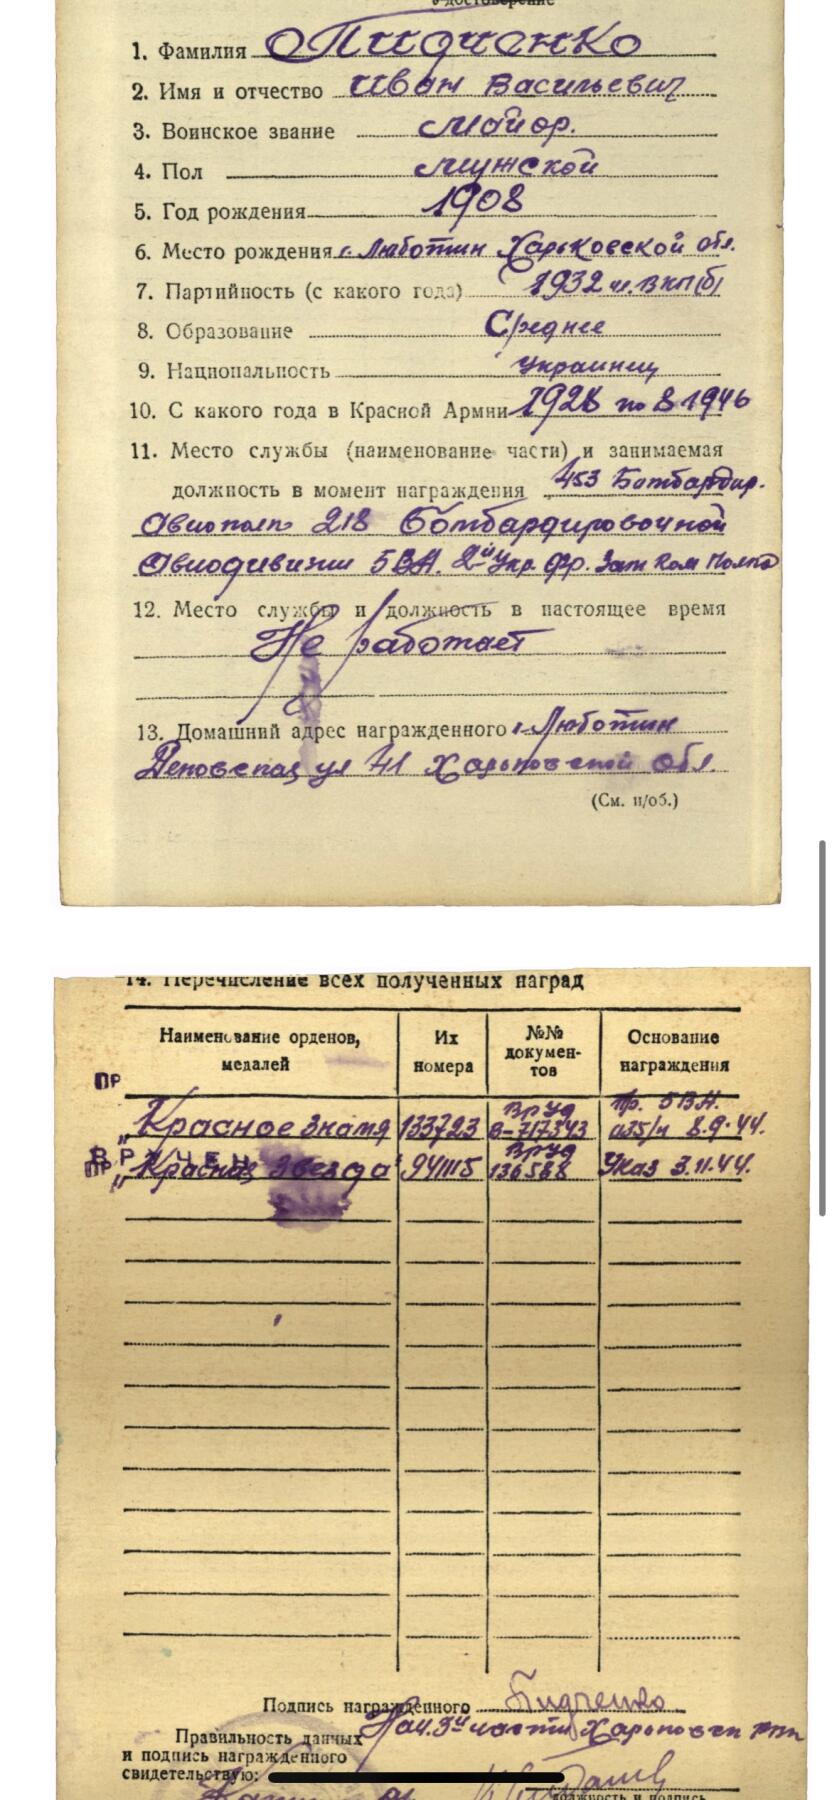 Удостоверение
1. Фамилия Пидченко
2. Имя и отчество Иван Васильевич
3. Воинское звание майор.
4. Пол мужской
5. Год рождения 1908
6. Место рождения г. Люботин Харьковской обл.
7. Партийность (с какого года) 1932 чл. ВКП(б)
8. Образование Среднее
9. Национальность украинец
10. С какого года в Красной Армии 1928 по 8.1946
11. Место службы (наименование части) и занимаемая
должность в момент награждения 453 Бомбардир.
Авиополк 218 бомбардировочной
Авиодивизии 5 ВА. 2й Укр. фр. Зам Ком Полка
12. Место службы и должность в настоящее время
Не работает
13. Домашний адрес награжденного г. Люботин
Деповская ул 41 Харьковской обл.
(См. н/об.)
14. Перечисление всех полученных наград
Наименование орденов, медалей Их номера №№ документов Основание награждения
ПР
„Красное Знамя 133723 Вр уд В-717343 Пр. 5 ВА. 035/н 8.9.44.
ВРУЧЕН
ПР „Красная Звезда" 941115 Вр уд 136588 Указ 3.11.44.
Подпись награжденного Пидченко
Нач. 3й части Харьковск
Правильность данных
и подпись награжденного
свидетельствую:
должность и подпись